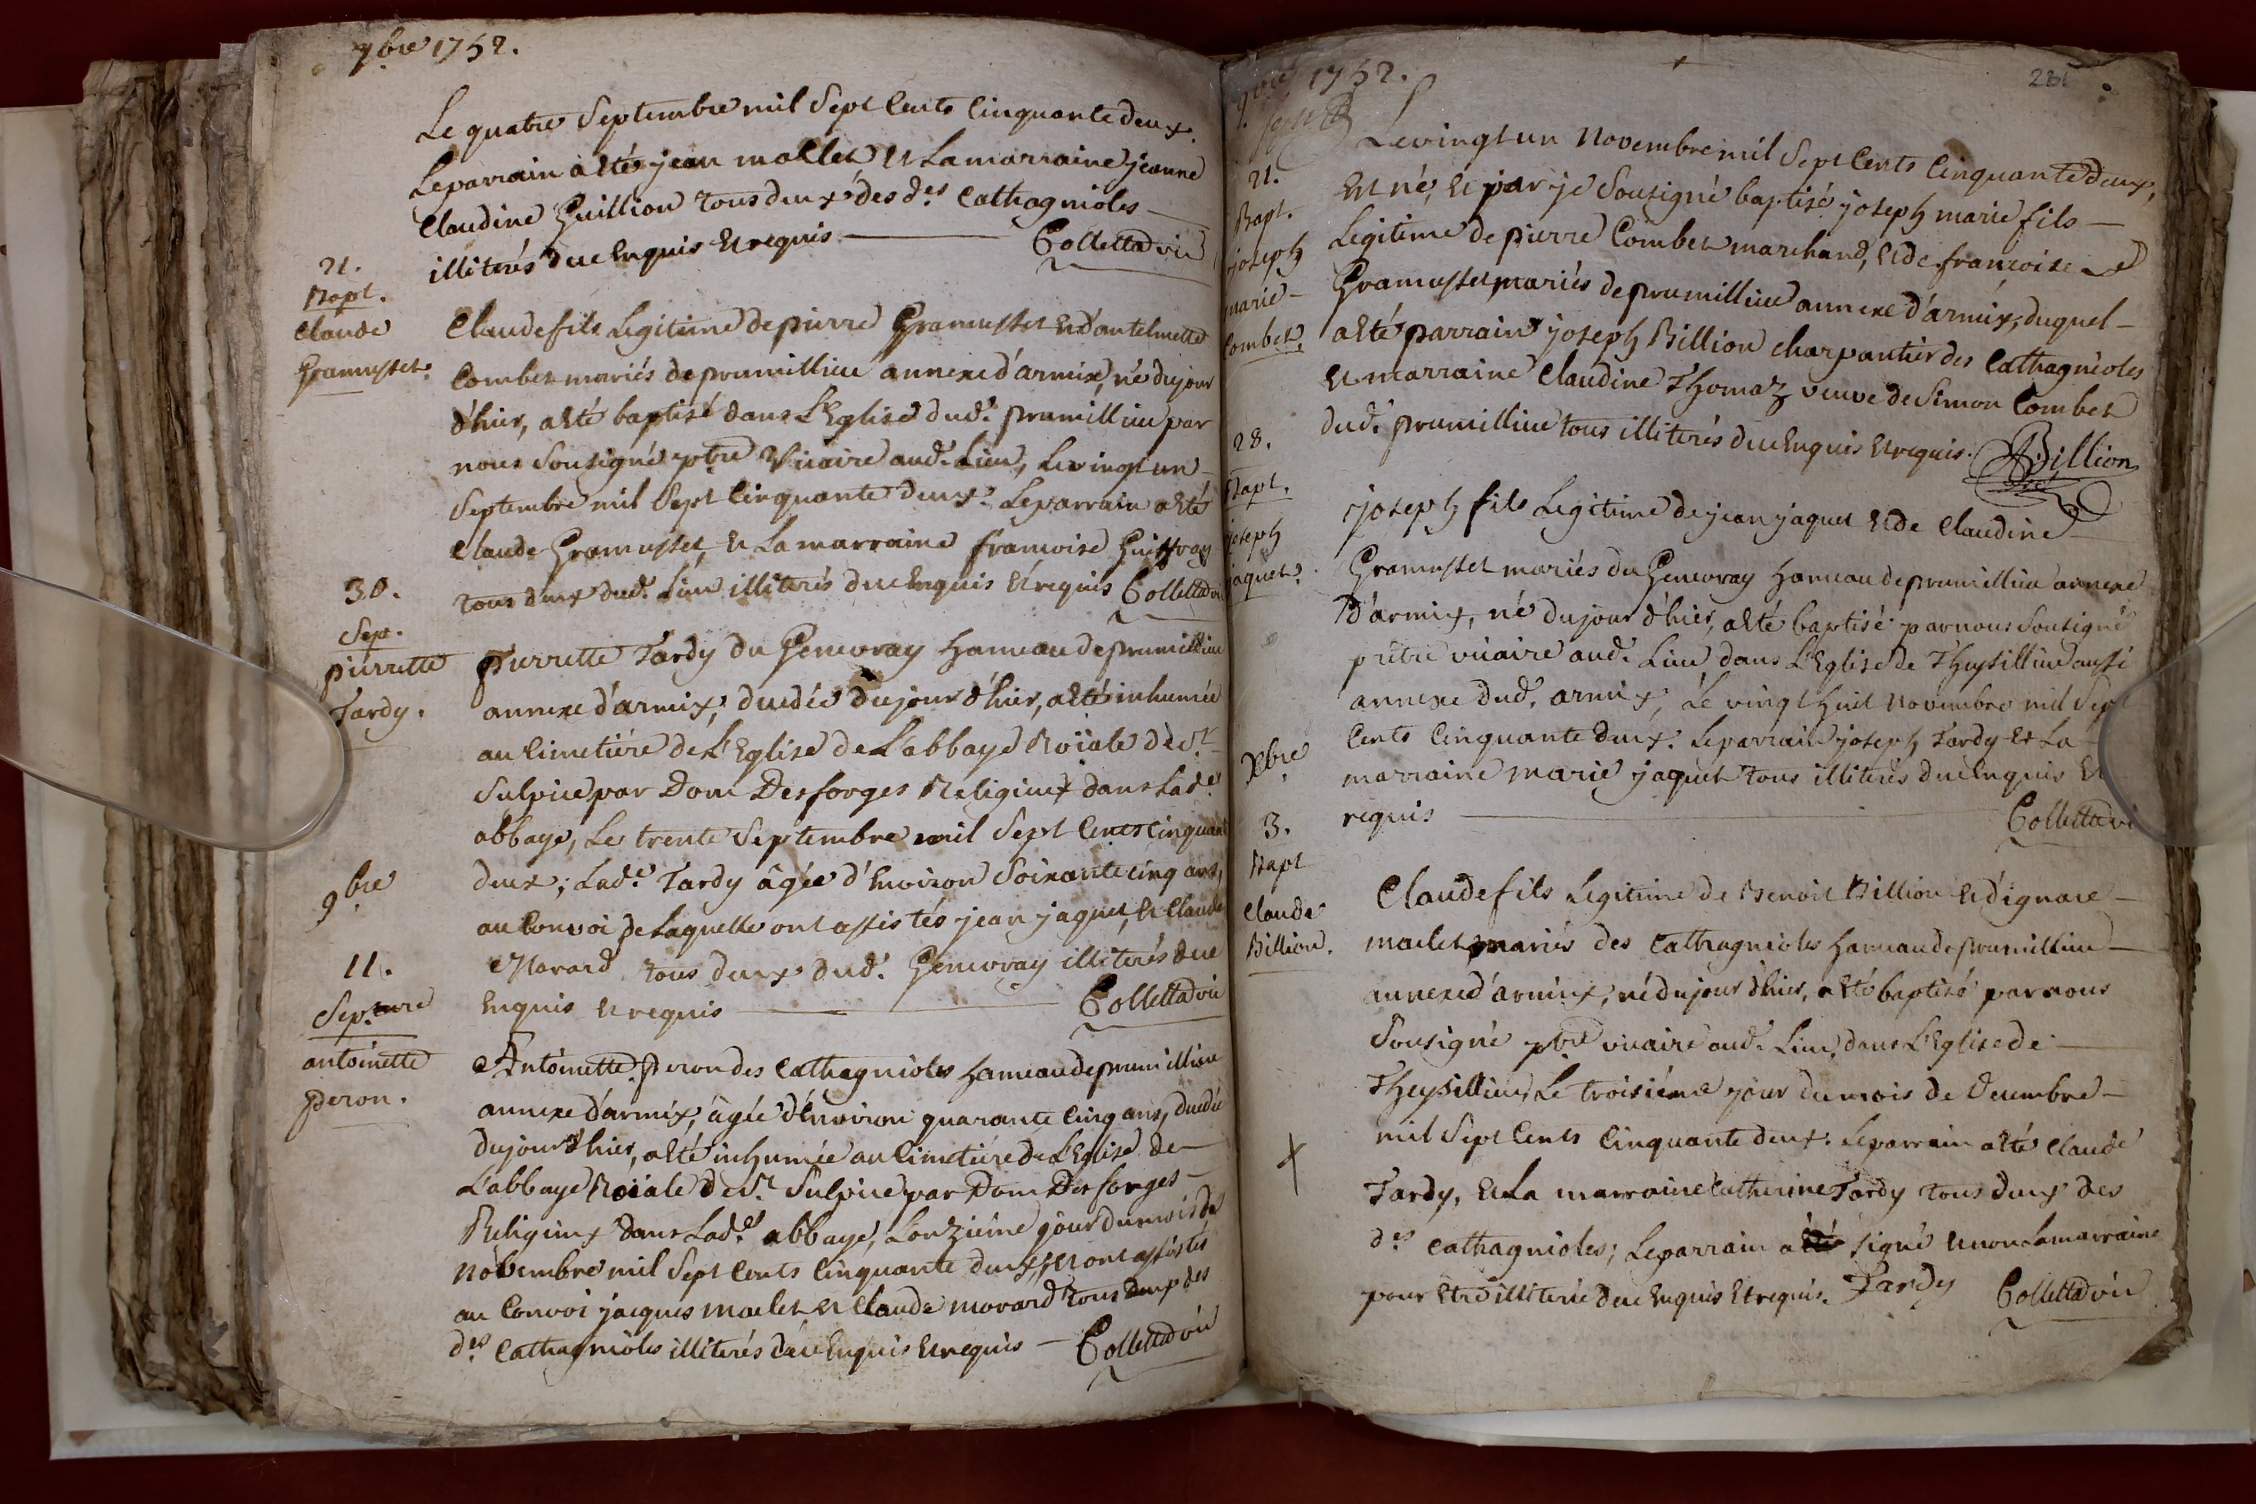 7bre 1752.
Le quatre Septembre mil Sept Cents Cinquante deux.
Le parrain a eté jean mallet et La marraine jeanne
Claudine Guillion tous deux des d.es Cathagnioles
illiterés deue Enquis et requis Colletta vic
21.
Bapt.
Claude
Gramusset.
Claude fils Legitime de pierre Gramusset et d'antelmette
Combet mariés de prumillieu annexe d'armix, né du jour
d'hier, a eté baptisé dans L'Eglise dud.t prumillieu par
nous Sousigné ptre Vicaire aud.t Lieu, Le vingt un
Septembre mil Sept Cinquante deux. Le parrain a eté
Claude Gramusset, et La marraine francoise Guiffray
tous deux dud.t Lieu illiterés due Enquis et requis Colletta vic
30.
Sep.
pierrette
Tardy.
pierrette Tardy du Genevray hameau de prumillieu
annexe d'armix, duedée du jour d'hier, a eté inhumée
au Cimetiére de L'Eglise de L'abbaye Roiale de S.t
Sulpice par Dom Desforges Religieux dans Lad.e
abbaye, Le trente Septembre mil Sept Cents Cinquante
deux; Lad.e Tardy âgée d'Environ Soixante cinq ans,
au Convoi de Laquelle ont assistés jean jaquet, et Claude
Morard tous deux dud.t Genevray illiterés due
Enquis et requis Colletta vic
9bre
11.
Sep.ture
antoinette
peron.
Antoinette peron des Cathagnioles hameau de prumillieu
annexe d'armix, âgée d'Environ quarante Cinq ans, duedée
du jour d'hier, a eté inhumée au Cimetiére de L'Eglise de
L'abbaye Roiale de S.t Sulpice par Dom Desforges
Religieux dans Lad.e abbaye, L'onziéme jour du mois de
Novembre mil Sept Cents Cinquante deux, et ont assistés
au Convoi jacques maclet et Claude morard tous deux des
d.es Cathagnioles illiterés due Enquis et requis Colletta vic
9bre 1752.
281
21.
Bapt.
joseph
marie
Combet.
Le vingt un Novembre mil Sept Cents Cinquante deux,
Est né, et par je Sousigné baptisé joseph marie fils
Legitime de pierre Combet marchand, et de francoise
Gramusset mariés de prumillieu annexe d'armix, duquel
a eté parrain joseph Billion charpantier des Cathagnioles
et marraine Claudine Thomaz veuve de Simon Combet
dud.t prumillieu tous illiterés due Enquis et requis. Billion
28.
Bapt.
joseph
jaquet.
joseph fils Legitime de jean jaquet et de Claudine
Gramusset mariés du Genevray hameau de prumillieu annexe
d'armix, né du jour d'hier, a eté baptisé par nous Sousigné
prêtre vicaire aud.t Lieu dans L'Eglise de Theysillieu aussi
annexe dud.t armix, Le vingt huit Novembre mil Sept
Cents Cinquante deux. Le parrain joseph Tardy et La
marraine marie jaquet tous illiterés due Enquis et
requis Colletta vi
Xbre
3.
Bapt
Claude
Billion.
Claude fils Legitime de Benoit Billion et d'ignace
maclet mariés des Cathagnioles hameau de prumillieu
annexe d'armix, né du jour d'hier, a eté baptisé par nous
Sousigné ptre vicaire aud.t Lieu, dans L'Eglise de
Theysillieu, Le troisiéme jour du mois de Decembre
mil Sept Cents Cinquante deux. Le parrain a eté Claude
Tardy, et La marraine Catherine Tardy tous deux des
d.es Cathagnioles; Le parrain a signé et non La marraine
pour Etre illiterée due Enquis et requis. Tardy Colletta vic
X